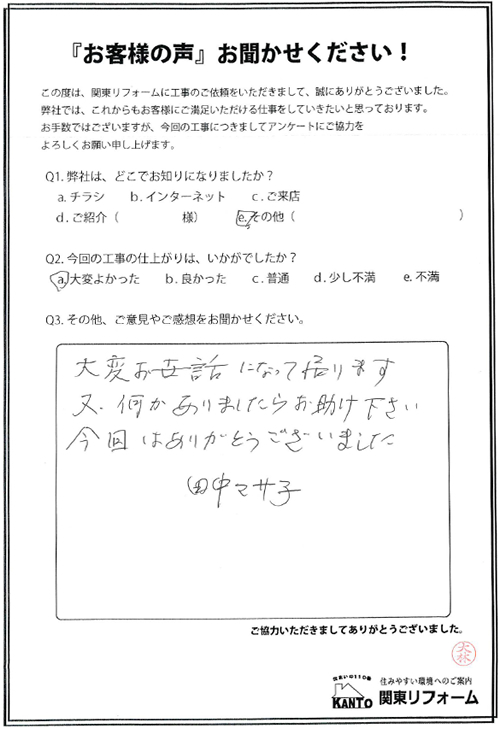 『お客様の声』お聞かせください！
この度は、関東リフォームに工事のご依頼をいただきまして、誠にありがとうございました。
弊社では、これからもお客様にご満足いただける仕事をしていきたいと思っております。
お手数ではございますが、今回の工事につきましてアンケートにご協力を
よろしくお願い申し上げます。
Q1. 弊社は、どこでお知りになりましたか？
a. チラシ b. インターネット c. ご来店
d. ご紹介（ 様） e. その他（ ）
Q2. 今回の工事の仕上がりは、いかがでしたか？
a. 大変よかった b. 良かった c. 普通 d. 少し不満 e. 不満
Q3. その他、ご意見やご感想をお聞かせください。
大変お世話になって居ります
又、何かありましたらお助け下さい
今回はありがとうございました
田中マサ子
ご協力いただきましてありがとうございました。
大林
住みやすい環境へのご案内
KANTO 関東リフォーム